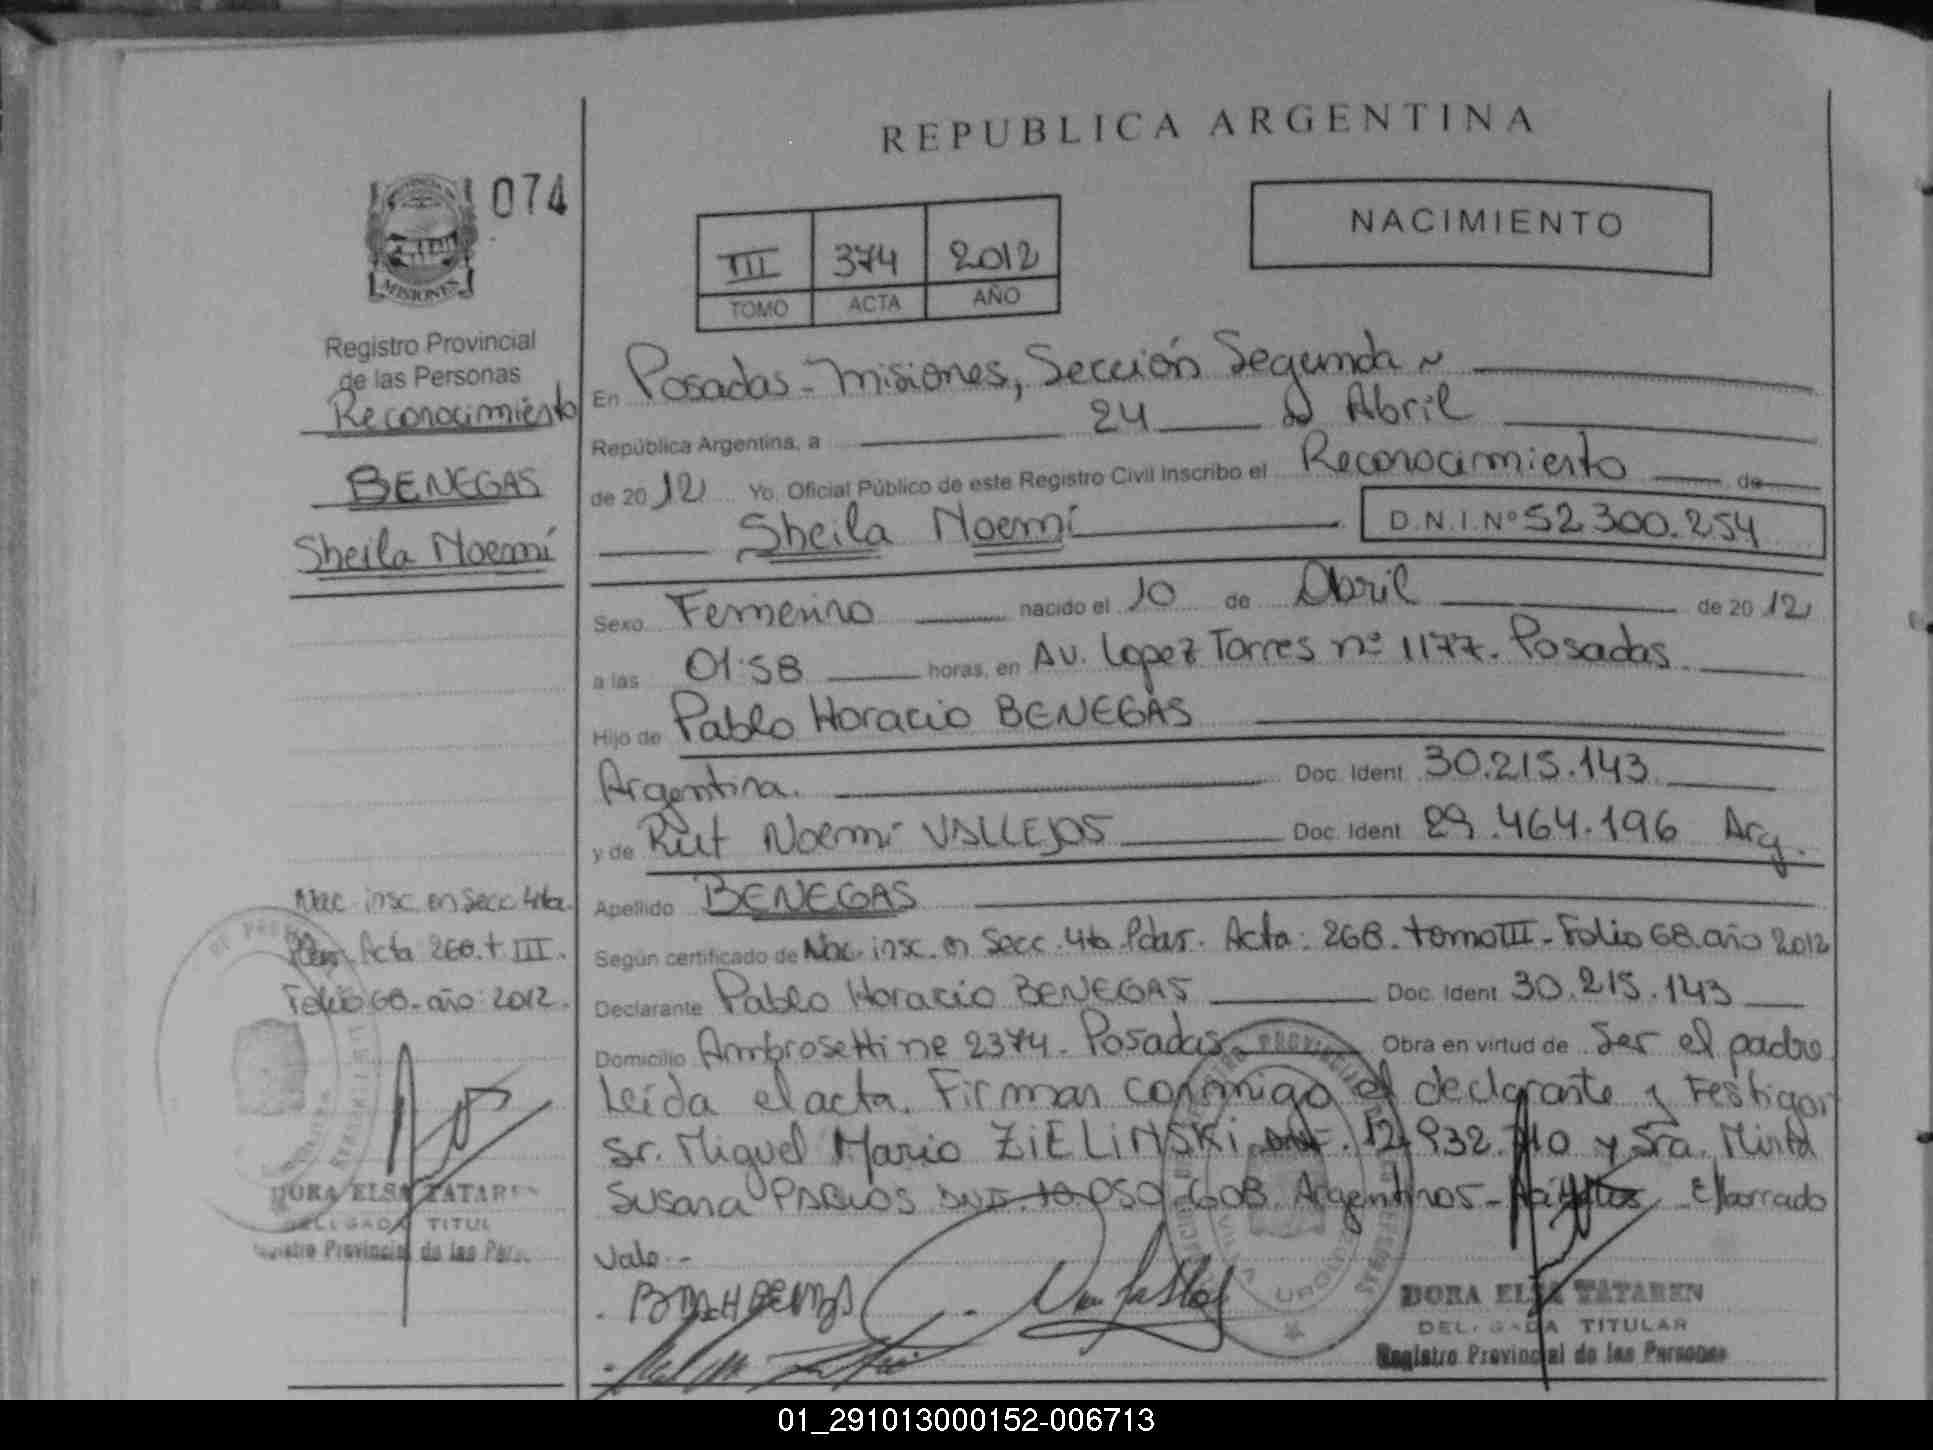 REPUBLICA ARGENTINA
074
NACIMIENTO
III 374 2012
TOMO ACTA AÑO
MISIONES
Registro Provincial
de las Personas
Reconocimiento
BENEGAS
Sheila Noemí
En Posadas - Misiones, Sección Segunda
República Argentina, a 24 d Abril
de 2012 Yo, Oficial Público de este Registro Civil Inscribo el Reconocimiento de
Sheila Noemí D.N.I. Nº 52.300.254
Sexo Femenino nacido el 10 de Abril de 2012
a las 01:58 horas, en Av. Lopez Torres nº 1177. Posadas
Hijo de Pablo Horacio BENEGAS
Argentina. Doc. Ident 30.215.143
y de Rut Noemi VALLEJOS Doc. Ident 29.464.196 Arg.
Apellido BENEGAS
Según certificado de Nac. insc. en Secc. 4ta Pdas. Acta: 268. tomo III - Folio 68. año 2012
Declarante Pablo Horacio BENEGAS Doc. Ident 30.215.143
Domicilio Ambrosetti nº 2374. Posadas Obra en virtud de Ser el padre
Leída el acta. Firman conmigo el declarante y Testigos
Sr. Miguel Mario ZIELINSKI 12.932. y Sra. Mirta
Susana Argentinos - E/borrado
Vale.-
Nac. insc. en Secc 4ta.
Acta 268. t III.
Folio 68 - año: 2012.
DORA ELSA TATAREN
DELEGADA TITUL
Registro Provincial de las Pers
DORA ELSA TATAREN
DELEGADA TITULAR
Registro Provincial de las Personas
01_291013000152-006713